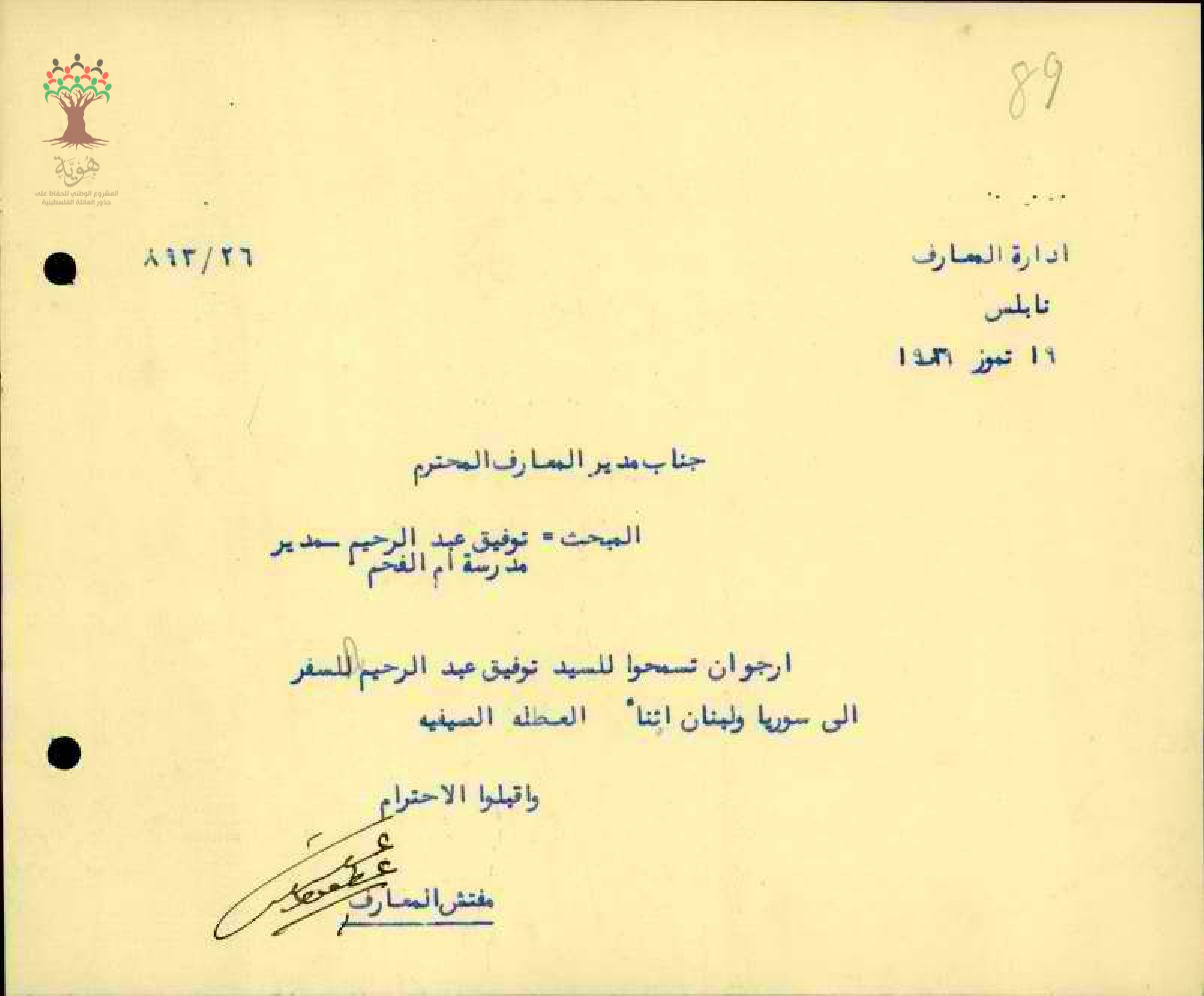 89
هُوِيَّة
المشروع الوطني للحفاظ على
جذور العائلة الفلسطينية
ادارة المعارف
٨٩٣/٢٦
نابلس
١٩ تموز
جناب مدير المعارف المحترم
المبحث = توفيق عبد الرحيم - مدير
مدرسة ام الفحم
ارجو ان تسمحوا للسيد توفيق عبد الرحيم للسفر
الى سوريا ولبنان اثناء العطله الصيفيه
واقبلوا الاحترام
مفتش المعارف